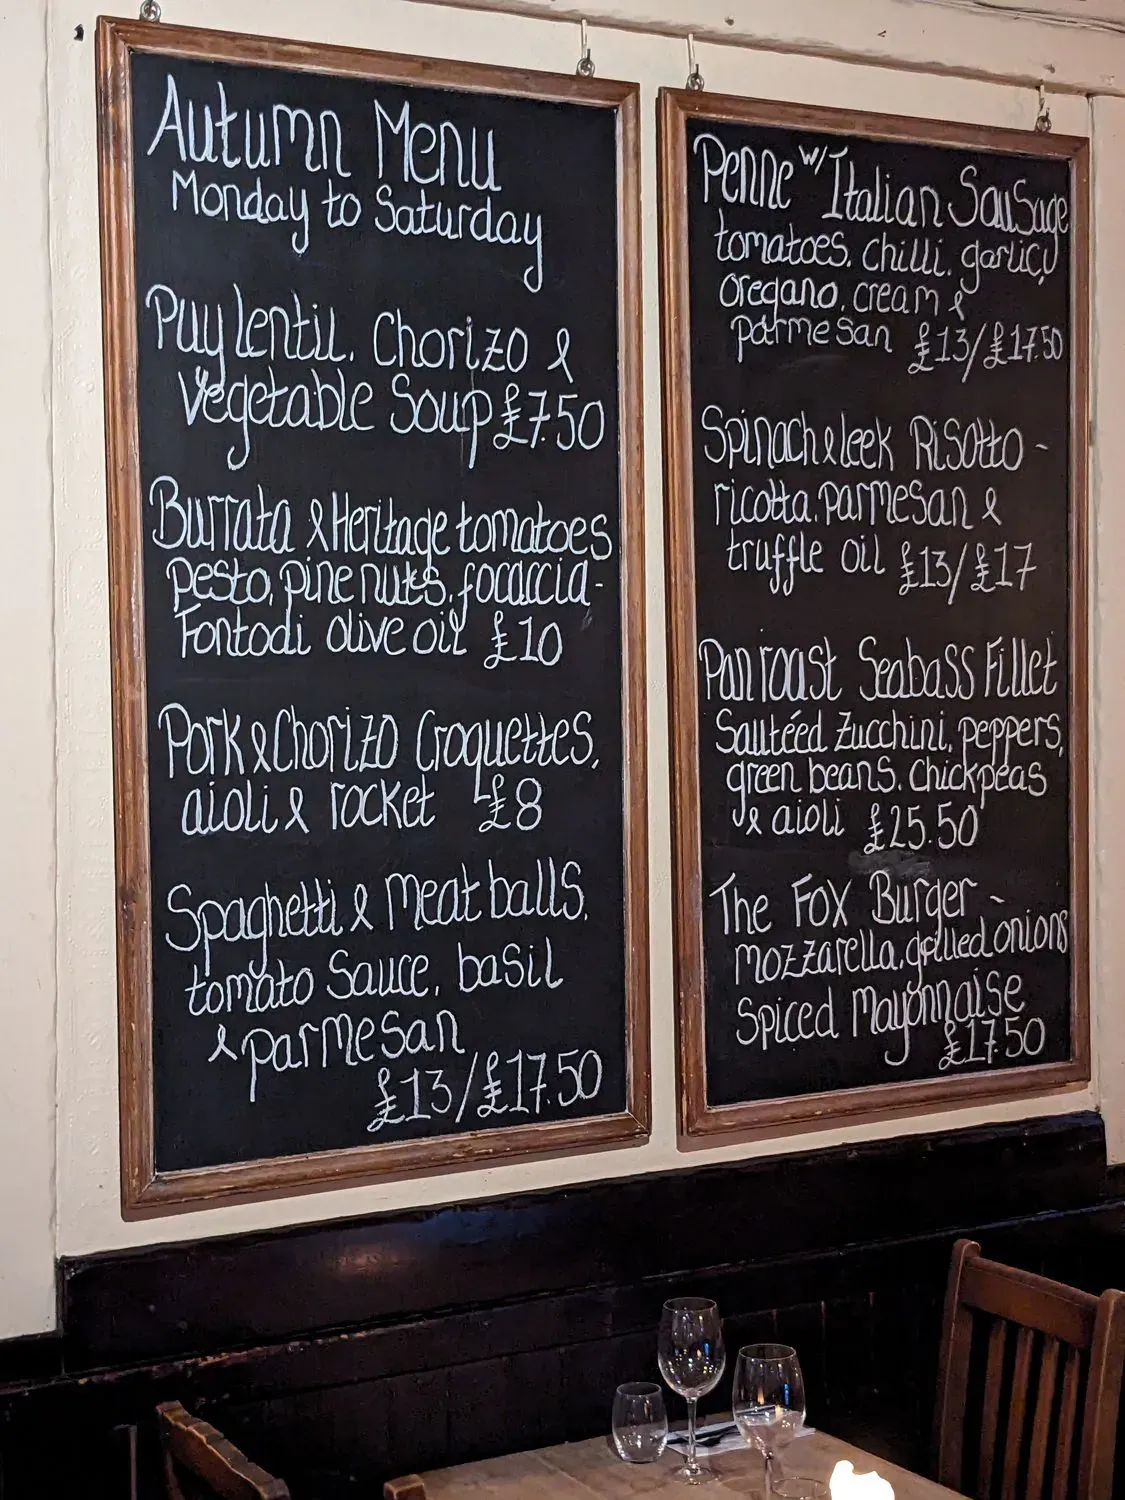 Autumn Menu
Monday to Saturday
Puy lentil, Chorizo &
Vegetable Soup £7.50
Burrata & Heritage tomatoes
pesto, pine nuts, focaccia -
Fontodi olive oil £10
Pork & Chorizo Croquettes,
aioli & rocket £8
Spaghetti & Meatballs,
tomato Sauce, basil
& parmesan
£13/£17.50
Penne w/ Italian Sausage
tomatoes, chilli, garlic,
oregano, cream &
parmesan £13/£17.50
Spinach & leek Risotto -
ricotta, parmesan &
truffle oil £13/£17
Pan roast Seabass Fillet
Sautéed Zucchini, peppers,
green beans, chickpeas
& aioli £25.50
The Fox Burger -
mozzarella, grilled onions
Spiced Mayonnaise
£17.50